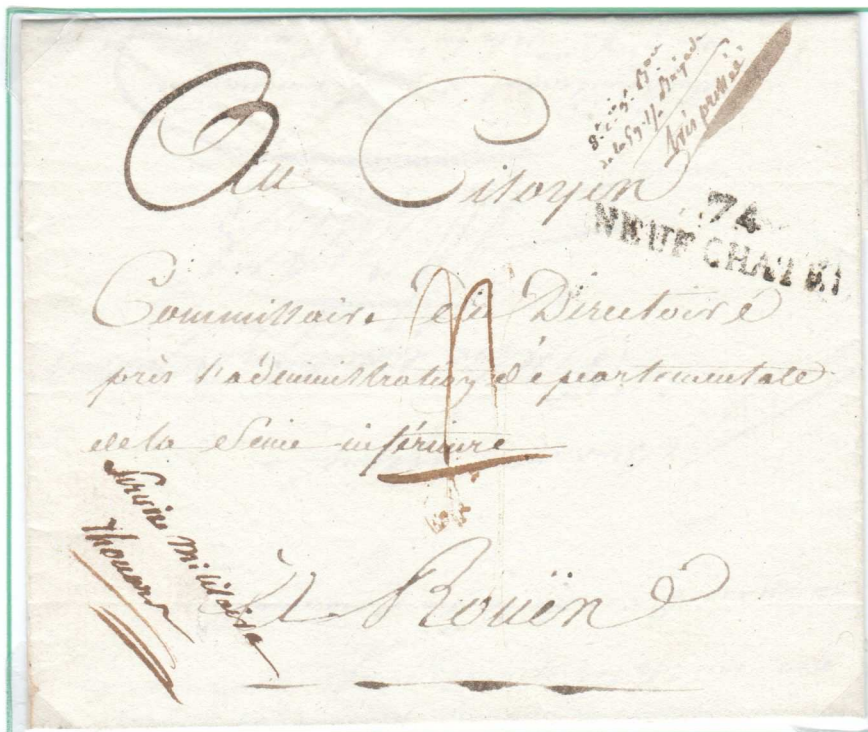 de la 59e 1/2 Brigade
très pressée
Au Citoyen
74
NEUFCHATEL
Commissaire du Directoire
près l'administration départementale
de la Seine inférieure
Service Militaire
Thouars
A Rouën